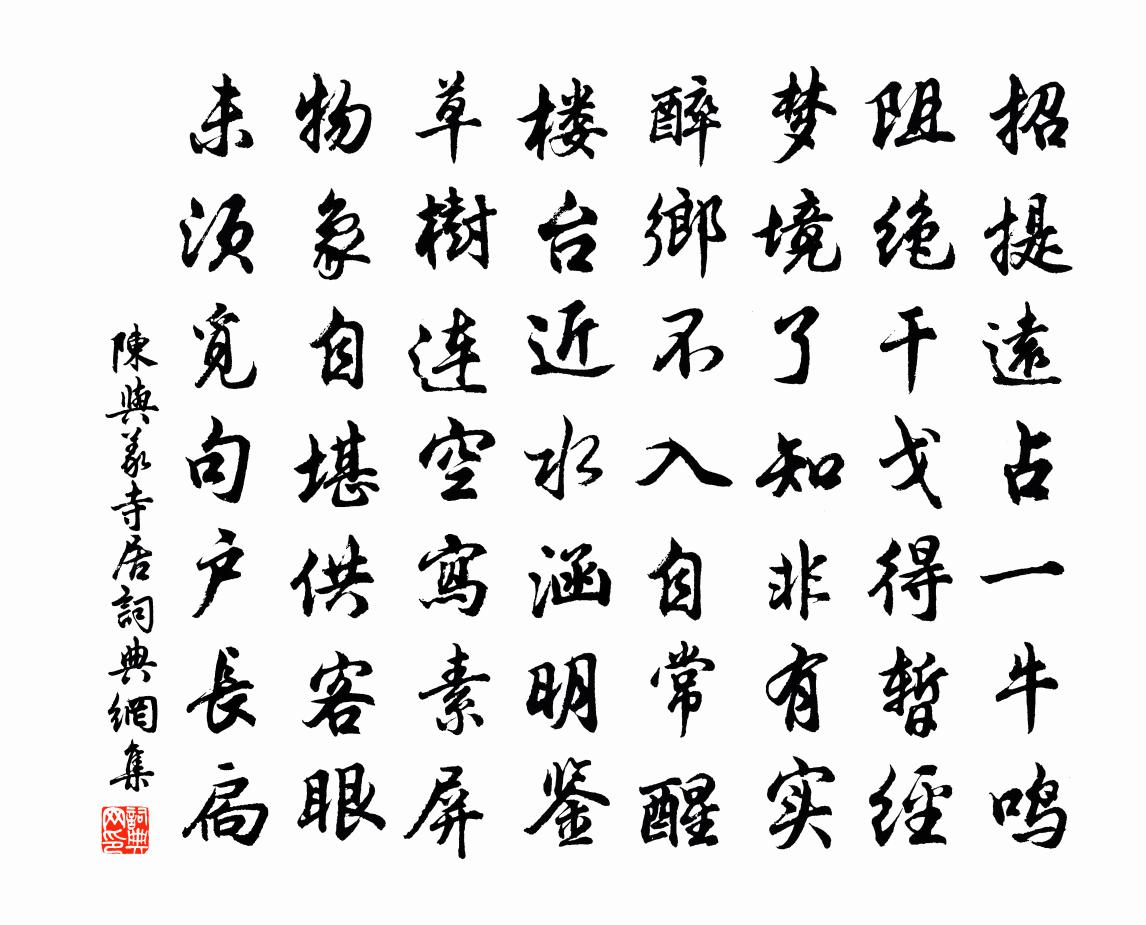 招提遠占一牛鸣
阻绝干戈得暫經
梦境了知非有实
醉鄉不入自常醒
楼台近水涵明鉴
草樹連空寫素屏
物象自堪供客眼
未须覓句户長扃
陳與義寺居詞典網集
詞典网印